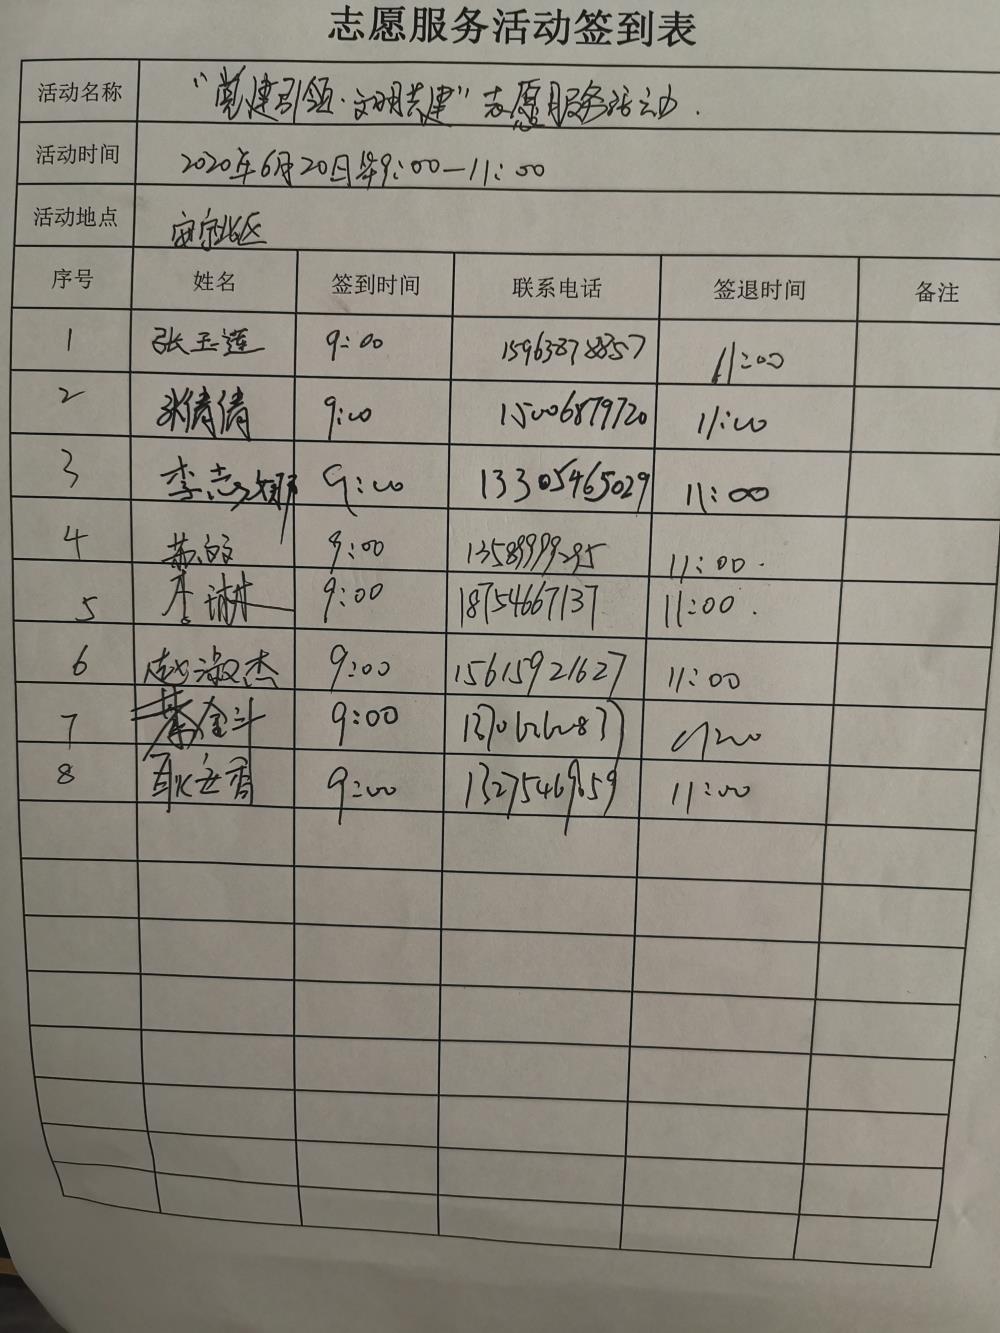 志愿服务活动签到表
活动名称 “党建引领·文明共建”志愿服务活动.
活动时间 2020年6月20日早9:00—11:00
活动地点 安宁北区
序号 姓名 签到时间 联系电话 签退时间 备注
1 张玉莲 9:00 15963878857 11:00
2 张倩倩 9:00 15006879720 11:00
3 李志娜 9:00 13305465029 11:00
4 苏 9:00 13589999295 11:00.
5 李琳 9:00 18754667137 11:00.
6 赵淑杰 9:00 15615921627 11:00
7 金斗 9:00 11:00
8 香 9:00 13275469659 11:00